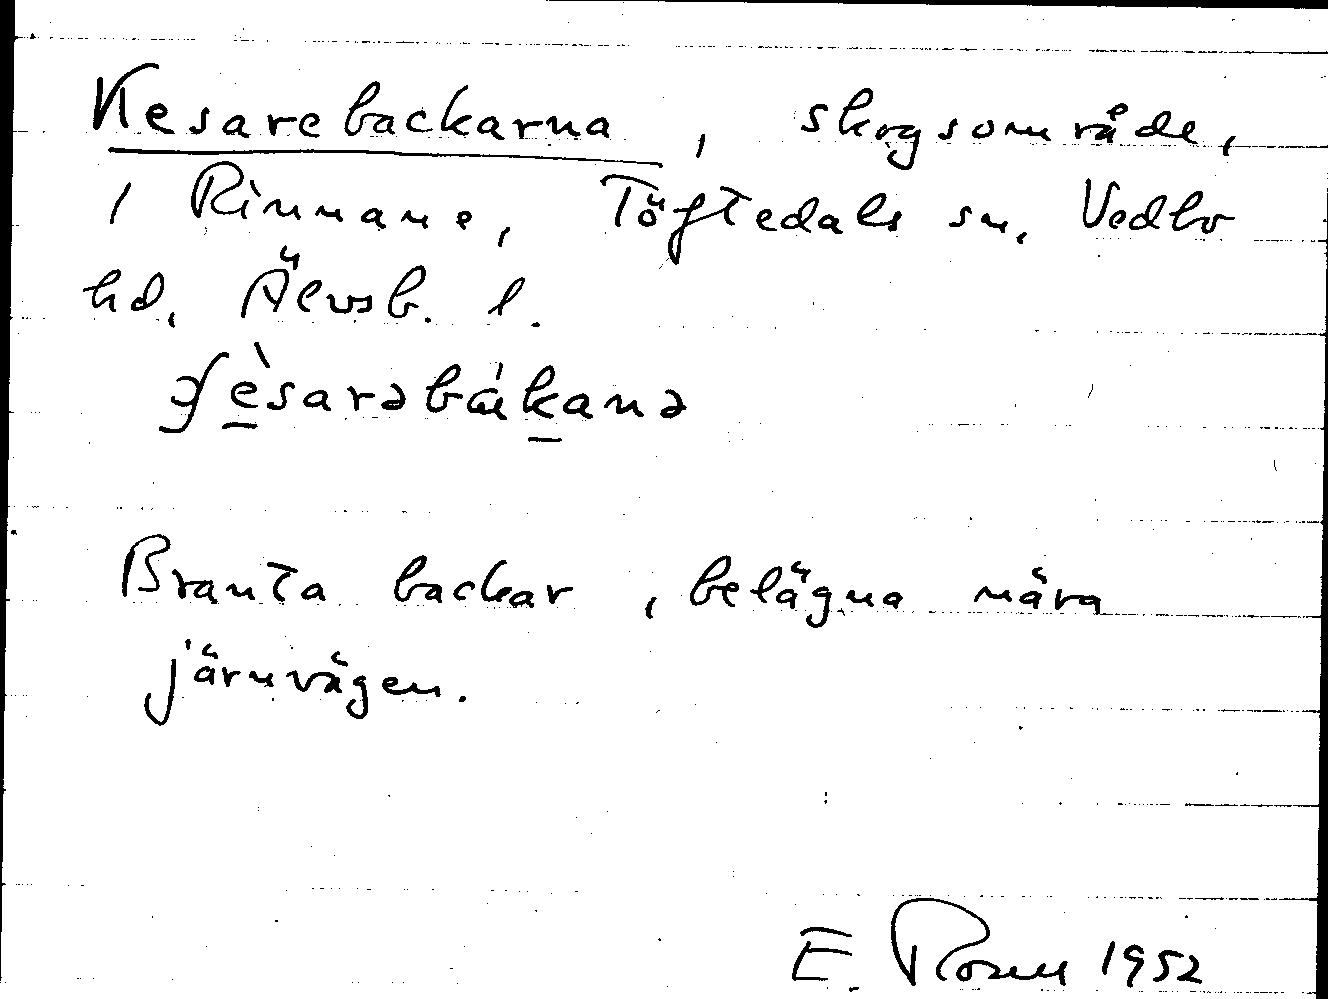 Kesarebackarna, skogsområde,
i Rinnane, Töftedals sn, Vedbo
hd, Älvsb. l.
Branta backar, belägna nära
järnvägen.
E. Rosell 1952